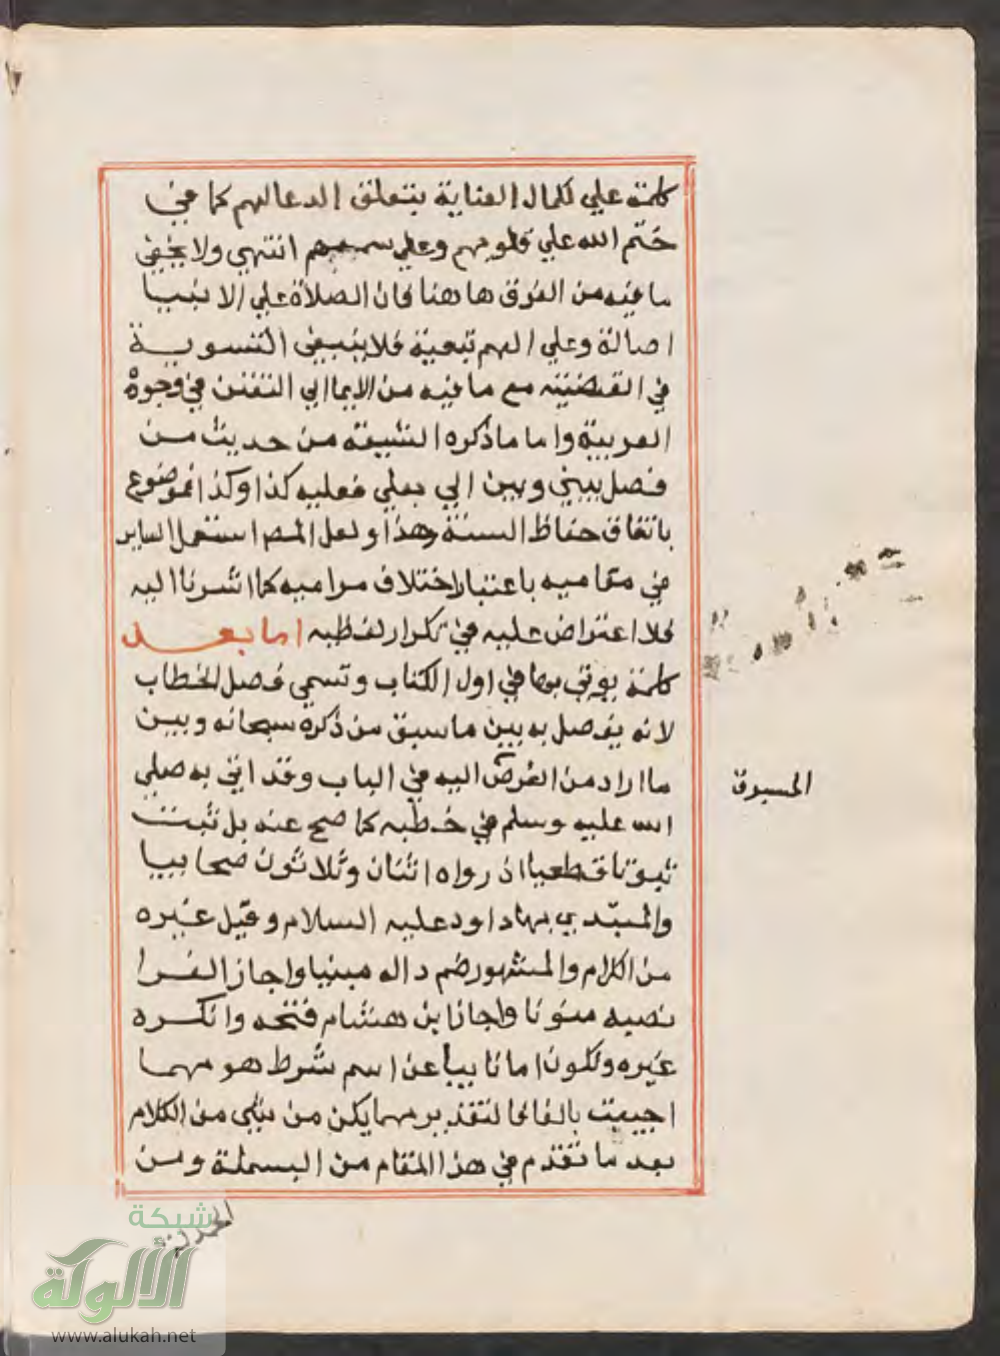 كلمة علي لكمال العناية بتعلق الدعا لهم كما في
ختم الله علي قلوبهم وعلي سمعهم انتهي ولا يخفي
ما فيه من الفرق ها هنا فان الصلاة علي الانبيا
اصالة وعلي الهم تبعية فلا ينبغي التسوية
في القضيتين مع ما فيه من الايما الي التفنن في وجوه
العربية واما ما ذكره الشيعة من حديث من
فصل بيني وبين الي بعلي فعليه كذا وكذا فموضوع
باتفاق حفاظ السنة وهذا ولعل المص استعمل الساير
في مقاميه باعتبار اختلاف مراميه كما اشرنا اليه
فلا اعتراض عليه في تكرار لفظيه اما بعد
كلمة يوتي بها في اول الكتاب وتسمي فصل الخطاب
لانه يفصل به بين ما سبق من ذكره سبحانه وبين
ما اراد من الغرض اليه في الباب وقد اتي به صلي
المسوق
الله عليه وسلم في خطبه كما صح عنه بل ثبت
ثبوتا قطعيا اذ رواه اثنان وثلاثون صحابيا
والمبتدي بها داود عليه السلام وقيل غيره
من الكلام والمشهور ضم داله مبنيا واجاز الفرا
نصبه منونا واجاز ابن هشام فتحه وانكره
غيره ولكون اما نايبا عن اسم شرط هو مهما
اجيبت بالفا فالتقدير مهما يكن من شي من الكلام
بعد ما تقدم في هذا المقام من البسملة ومن
الحمدلة
شبكة
الألوكة
www.alukah.net